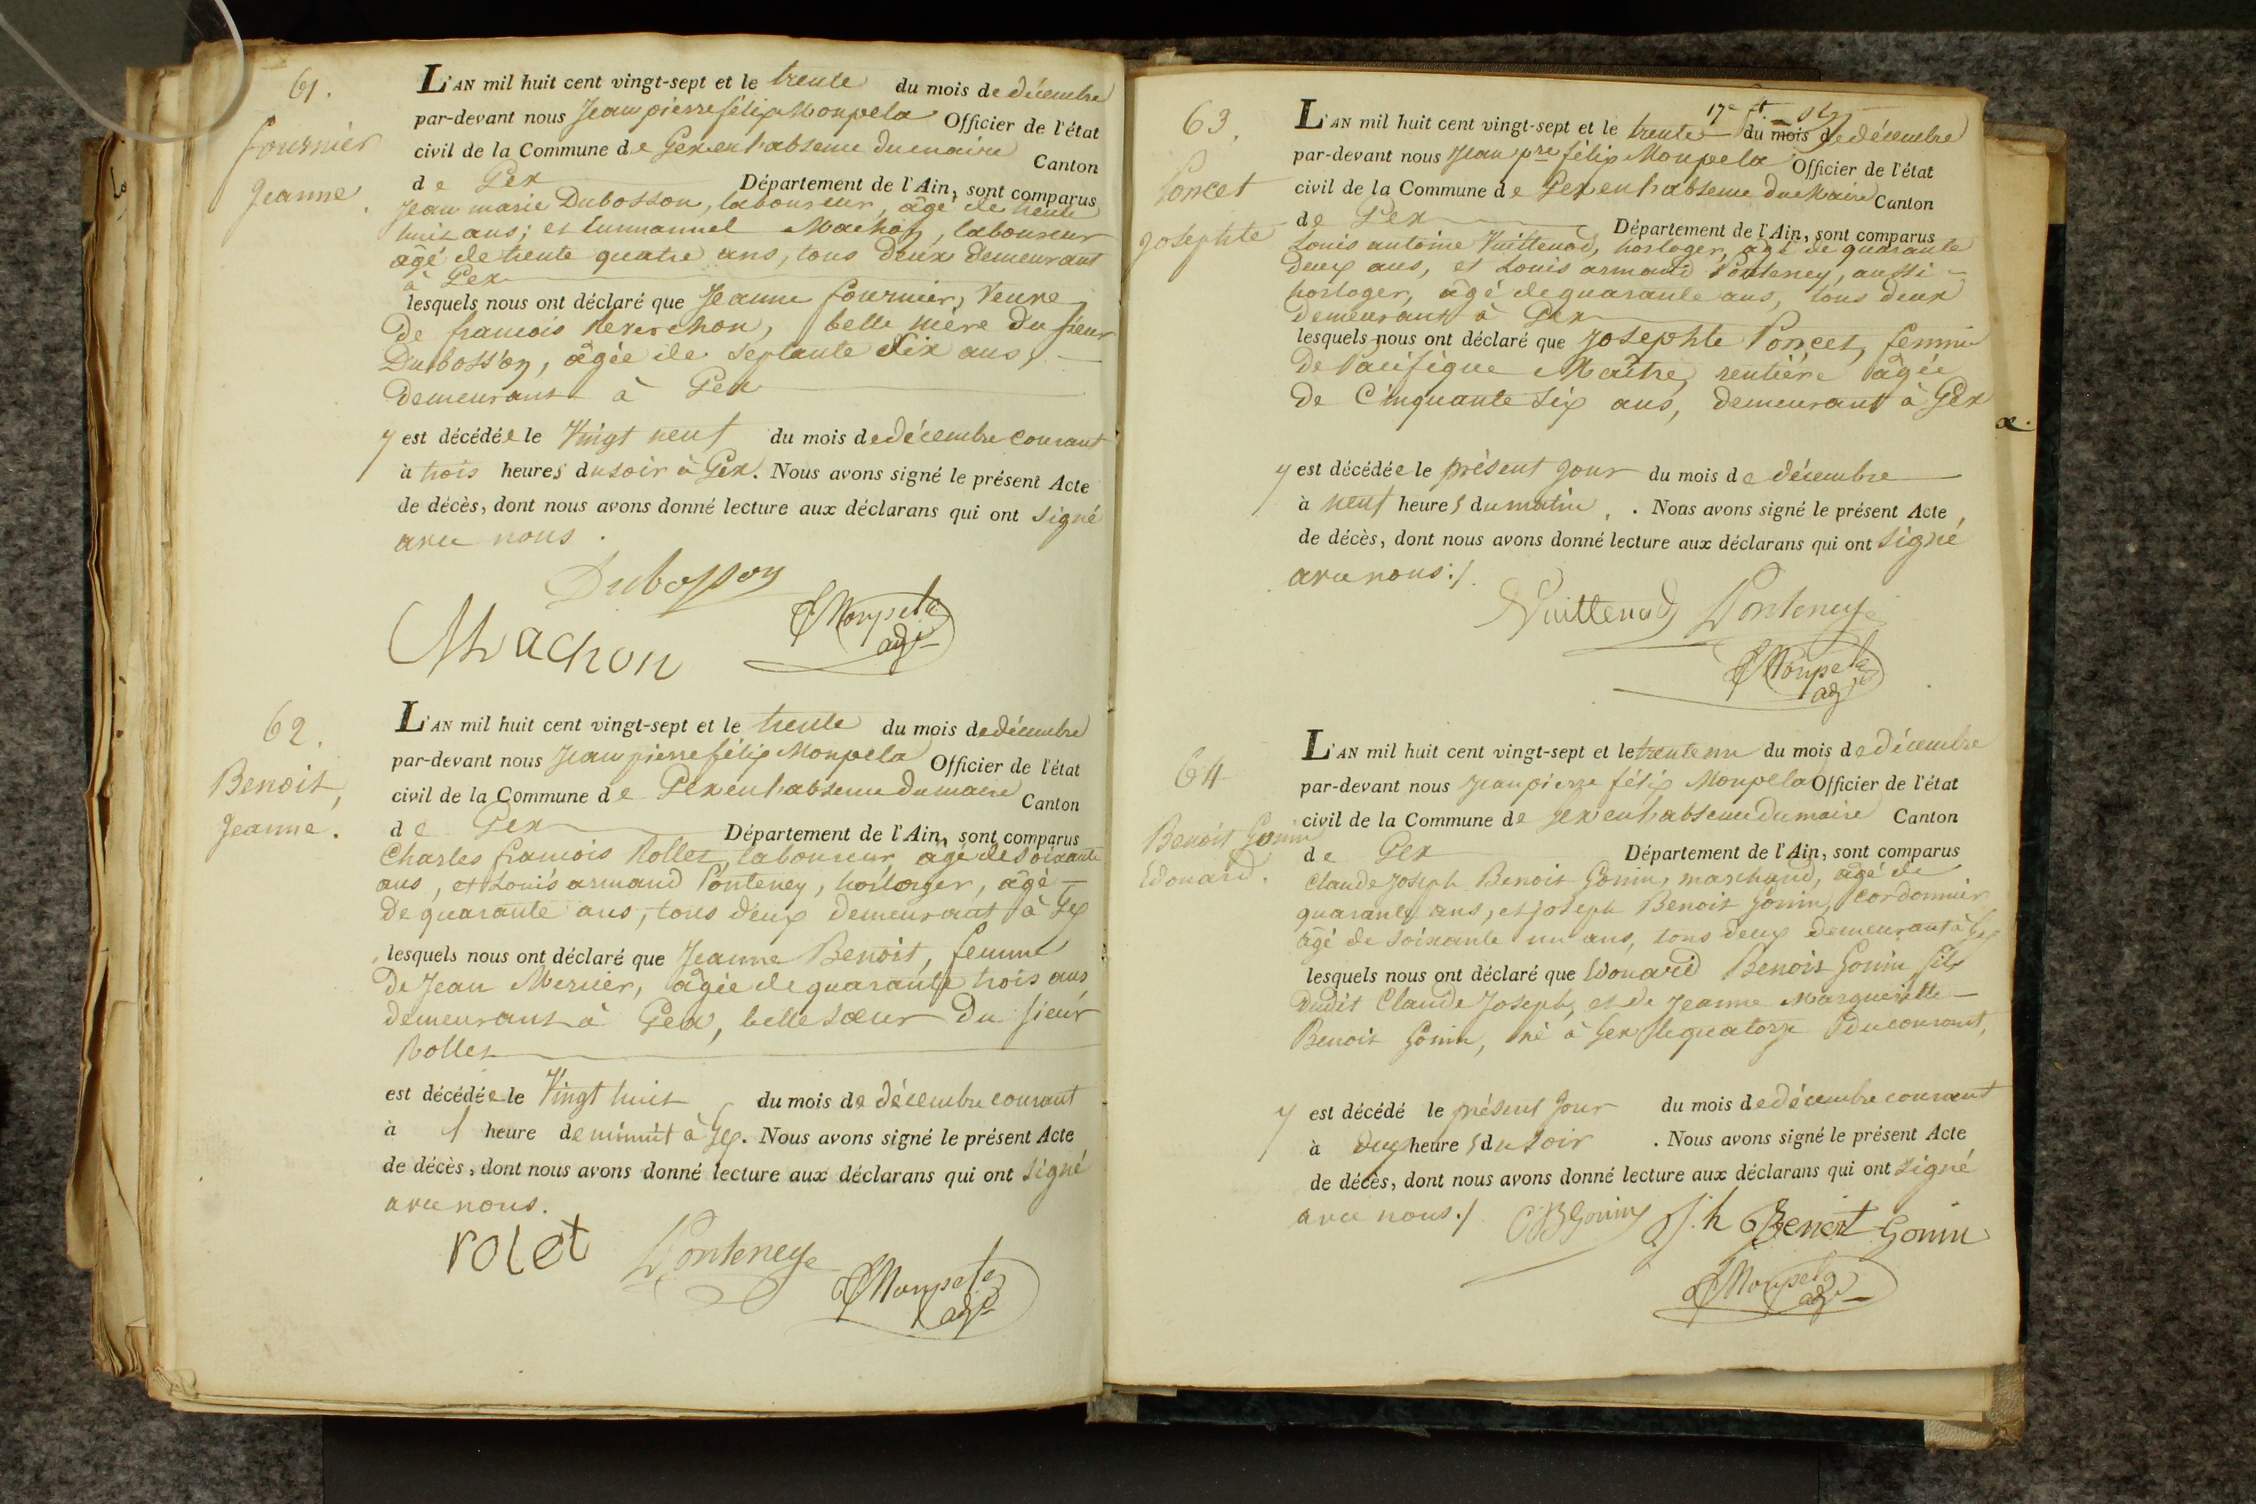 61.
Fournier
Jeanne.
L'AN mil huit cent vingt-sept et le trente du mois de décembre
par-devant nous Jean pierre félix Monpela Officier de l'état
civil de la Commune de Gex en l'absence du maire Canton
de Gex Département de l'Ain, sont comparus
Jean marie Dubosson, laboureur, âgé de trente
huit ans; et Emmanuel Machon, laboureur
âgé de trente quatre ans, tous deux demeurant
à Gex
lesquels nous ont déclaré que Jeanne fournier, Veuve
De francois Reverchon, belle mère du sieur
Dubosson, âgée de septante dix ans,
demeurant à Gex
y est décédée le Vingt neuf du mois de décembre courant
à trois heures du soir à Gex. Nous avons signé le présent Acte
de décès, dont nous avons donné lecture aux déclarans qui ont signé
avec nous.
Dubosson
Machon
Monpela
adj.
62.
Benoit,
Jeanne.
L'AN mil huit cent vingt-sept et le trente du mois de décembre
par-devant nous Jean pierre félix Monpela Officier de l'état
civil de la Commune de Gex en l'absence du maire Canton
de Gex Département de l'Ain, sont comparus
Charles francois Rollet, laboureur, âgé de soixante
ans, et Louis armand Ponteney, horloger, âgé
De quarante ans, tous deux demeurant à Gex
lesquels nous ont déclaré que Jeanne Benoit, femme
De Jean Mercier, âgée de quarante trois ans
demeurant à Gex, belle soeur Du sieur
Rollet
est décédée le Vingt huit du mois de décembre courant
à heure de minuit à Gex. Nous avons signé le présent Acte
de décès, dont nous avons donné lecture aux déclarans qui ont signé
avec nous.
rolet Ponteney Monpela
adj.
17e
63.
Poncet
Josephte
L'AN mil huit cent vingt-sept et le trente du mois de décembre
par-devant nous Jean pre félix Monpela Officier de l'état
civil de la Commune de Gex en l'absence du Maire Canton
de Gex Département de l'Ain, sont comparus
Louis antoine Vuittenod, horloger, âgé de quarante
deux ans, et Louis armand Ponteney, aussi
horloger, âgé de quarante ans, tous deux
demeurant à Gex
lesquels nous ont déclaré que Josephte Poncet, femme
De Pacifique Maître, rentière âgée
de Cinquante six ans, demeurant à Gex
y est décédée le présent jour du mois de décembre
à neuf heures du matin. Nous avons signé le présent Acte
de décès, dont nous avons donné lecture aux déclarans qui ont signé
avec nous./.
Vuittenod Ponteney
Monpela
adj.
64
Benoit Gonin
Edouard.
L'AN mil huit cent vingt-sept et le trente un du mois de décembre
par-devant nous Jean pierre félix Monpela Officier de l'état
civil de la Commune de Gex en l'absence du maire Canton
de Gex Département de l'Ain, sont comparus
Claude Joseph Benoit Gonin, marchand, âgé de
quarante ans, et joseph Benoit Gonin, Cordonnier
âgé de soixante un ans, tous deux demeurant à Gex
lesquels nous ont déclaré que Edouard Benoit Gonin fils
dudit Claude Joseph, et de Jeanne Marguerite
Benoit Gonin, né à Gex le quatorze du courant,
y est décédé le présent jour du mois de décembre courant
à deux heures du soir. Nous avons signé le présent Acte
de décès, dont nous avons donné lecture aux déclarans qui ont signé
avec nous./
CJBGonin J.h Benoit Gonin
Monpela
adj.